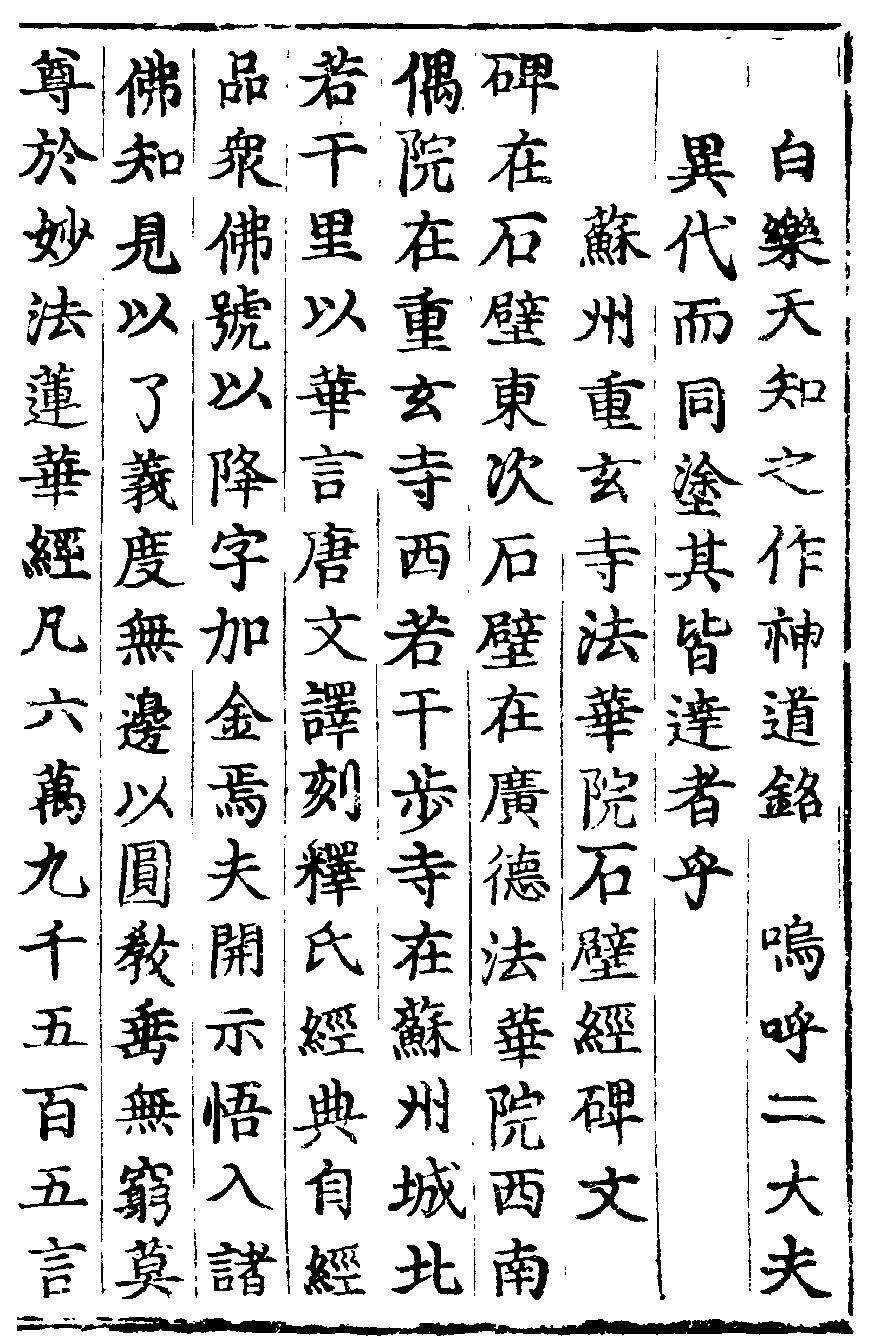 白樂天知之作神道銘　嗚呼二大夫
異代而同塗其皆達者乎
蘇州重玄寺法華院石壁經碑文
碑在石壁東次石壁在廣德法華院西南
偶院在重玄寺西若干步寺在蘇州城北
若干里以華言唐文譯刻釋氏經典自經
品衆佛號以降字加金焉夫開示悟入諸
佛知見以了義度無邊以圓教垂無窮莫
尊於妙法蓮華經凡六萬九千五百五言